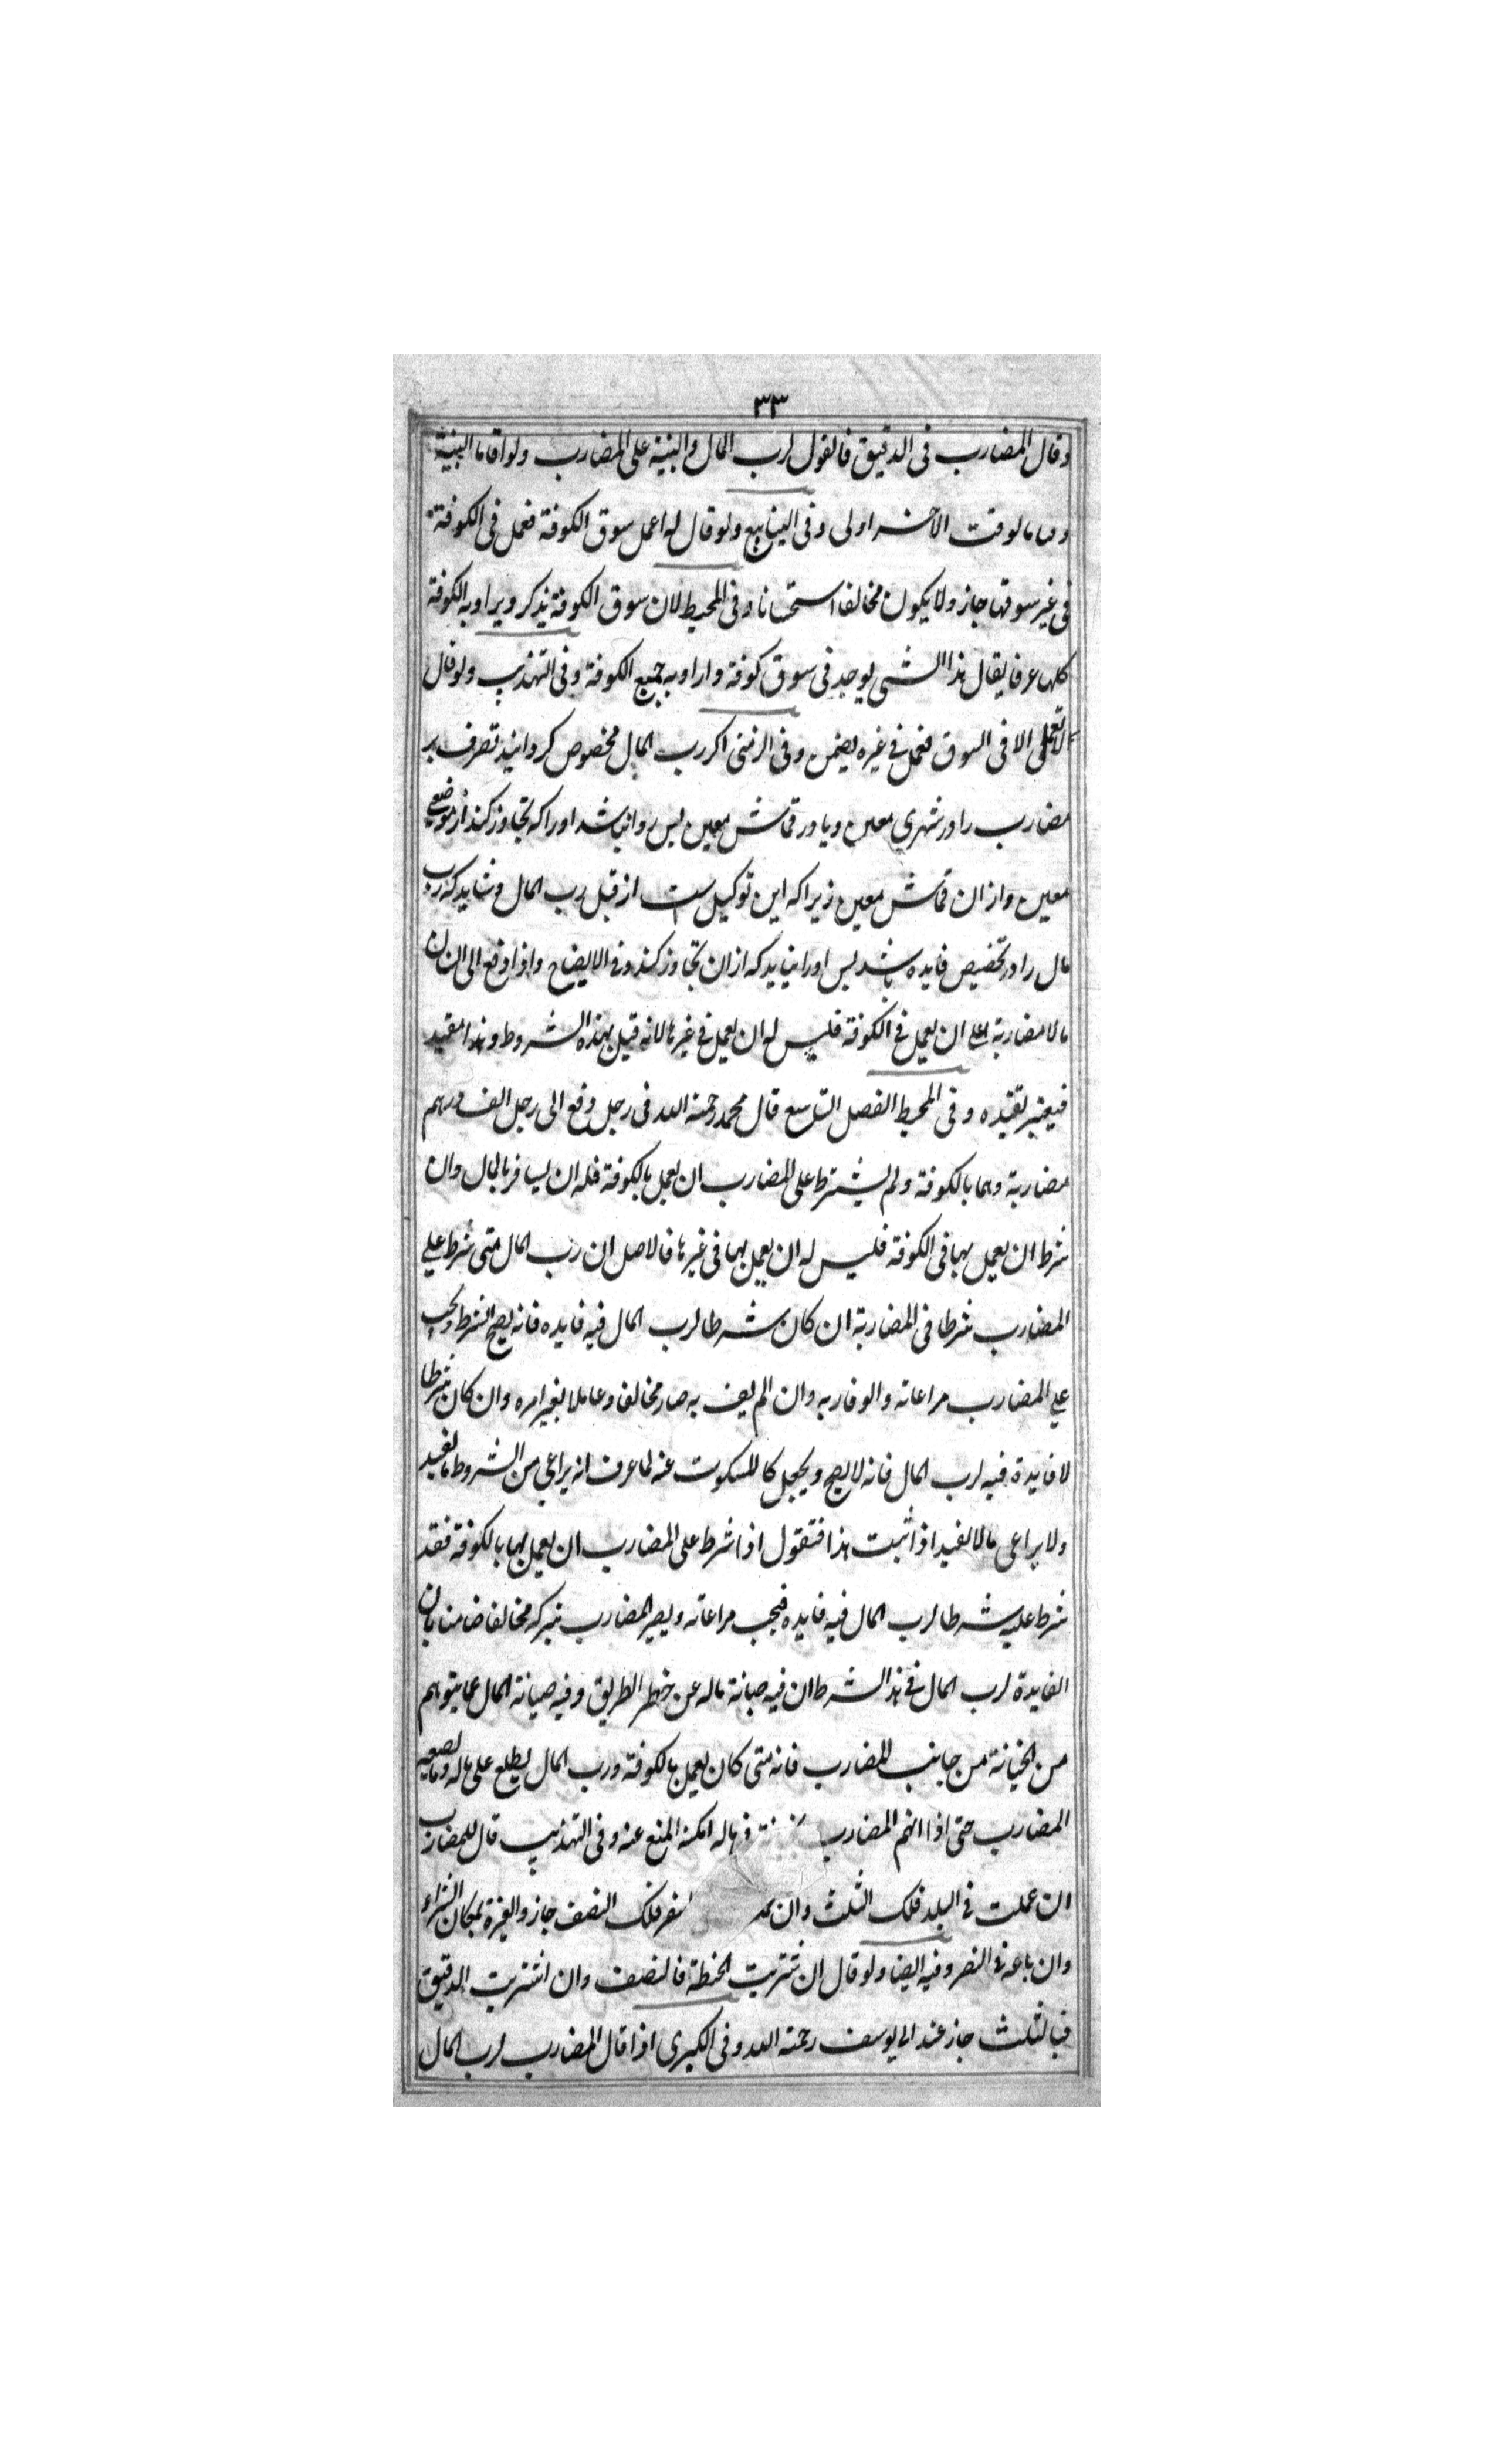 ٣٣
وقال المضارب فى الدقيق فالقول لرب المال والبينة على المضارب ولو اقاما البينة
وقتا فالوقت الاخر اولى وفى الينابيع ولو قال له اعمل سوق الكوفة فعمل فى الكوفة
فى غير سوقها جاز ولا يكون مخالفا استحسانا وفى المحيط لان سوق الكوفة يذكر ويراد به الكوفة
كلها عرفا يقال هذا الشى يوجد فى سوق كوفة واراد به جميع الكوفة وفى التهذيب ولو قال
لا تعمل الا فى السوق فعمل فى غيره يضمن وفى اكر رب المال مخصوص كردانيد تصرف بر
مضارب را در شهرى معين ويا در قماش معين پس روا نباشد او را كه تجاوز كند از موضعى
معين واز ان قماش معين زيرا كه اين توكيل ست از قبل رب المال وشايد كه رب
مال را در تخصيص فايده باشد پس او را نيايد كه از ان تجاوز كند وفى الايضاح واذا دفع الى انسان
مالا مضاربة على ان يعمل فى الكوفة فليس له ان يعمل فى غيرها لانه قيل بهذه الشروط وهذا مقيد
فيعتبر تقيده وفى المحيط الفصل التاسع قال محمد رحمة الله فى رجل دفع الى رجل الف درهم
مضاربة وهما بالكوفة ولم يشترط على المضارب ان يعمل بالكوفة فله ان يسافر بالمال وان
شرط ان يعمل بها فى الكوفة فليس له ان يعمل بها فى غيرها فالاصل ان رب المال متى شرط على
المضارب شرطا فى المضاربة ان كان شرطا لرب المال فيه فايده فانه يصح الشرط ويجب
على المضارب مراعاته والوفا به وان لم يف به صار مخالفا وعاملا بغير امره وان كان شرطا
لا فايدة فيه لرب المال فانه لا يصح ويجعل كالمسكوت عنه لما عرف انه يراعى من الشروط ما يفيد
ولا يراعى ما لا يفيد اذ اثبت هذا فنقول اذا شرط على المضارب ان يعمل بها بالكوفة فقد
شرط عليه شرطا لرب المال فيه فايده فيجب مراعاته ويصير المضارب بتركه مخالفا ضامنا بان
الفايدة لرب المال فى هذا الشرط ان فيه صيانة ماله عن خطر الطريق وفيه صيانة المال عما يتوهم
من الخيانة من جانب المضارب فانه متى كان يعمل بالكوفة ورب المال يطلع على ماله وما يصعبه
المضارب حتى اذا اتهم المضارب بخيانة فى ماله امكنه المنع عنه وفى التهذيب قال للمضارب
ان عملت فى البلد فلك الثلث وان سفر فلك النصف جاز والعبرة بمكان الشراء
وان باعه فى المصر وفيه ايضا ولو قال ان شتريت الحنطة فالنصف وان اشتريت الدقيق
فبالثلث جاز عند ابى يوسف رحمة الله وفى الكبرى اذا قال المضارب لرب المال